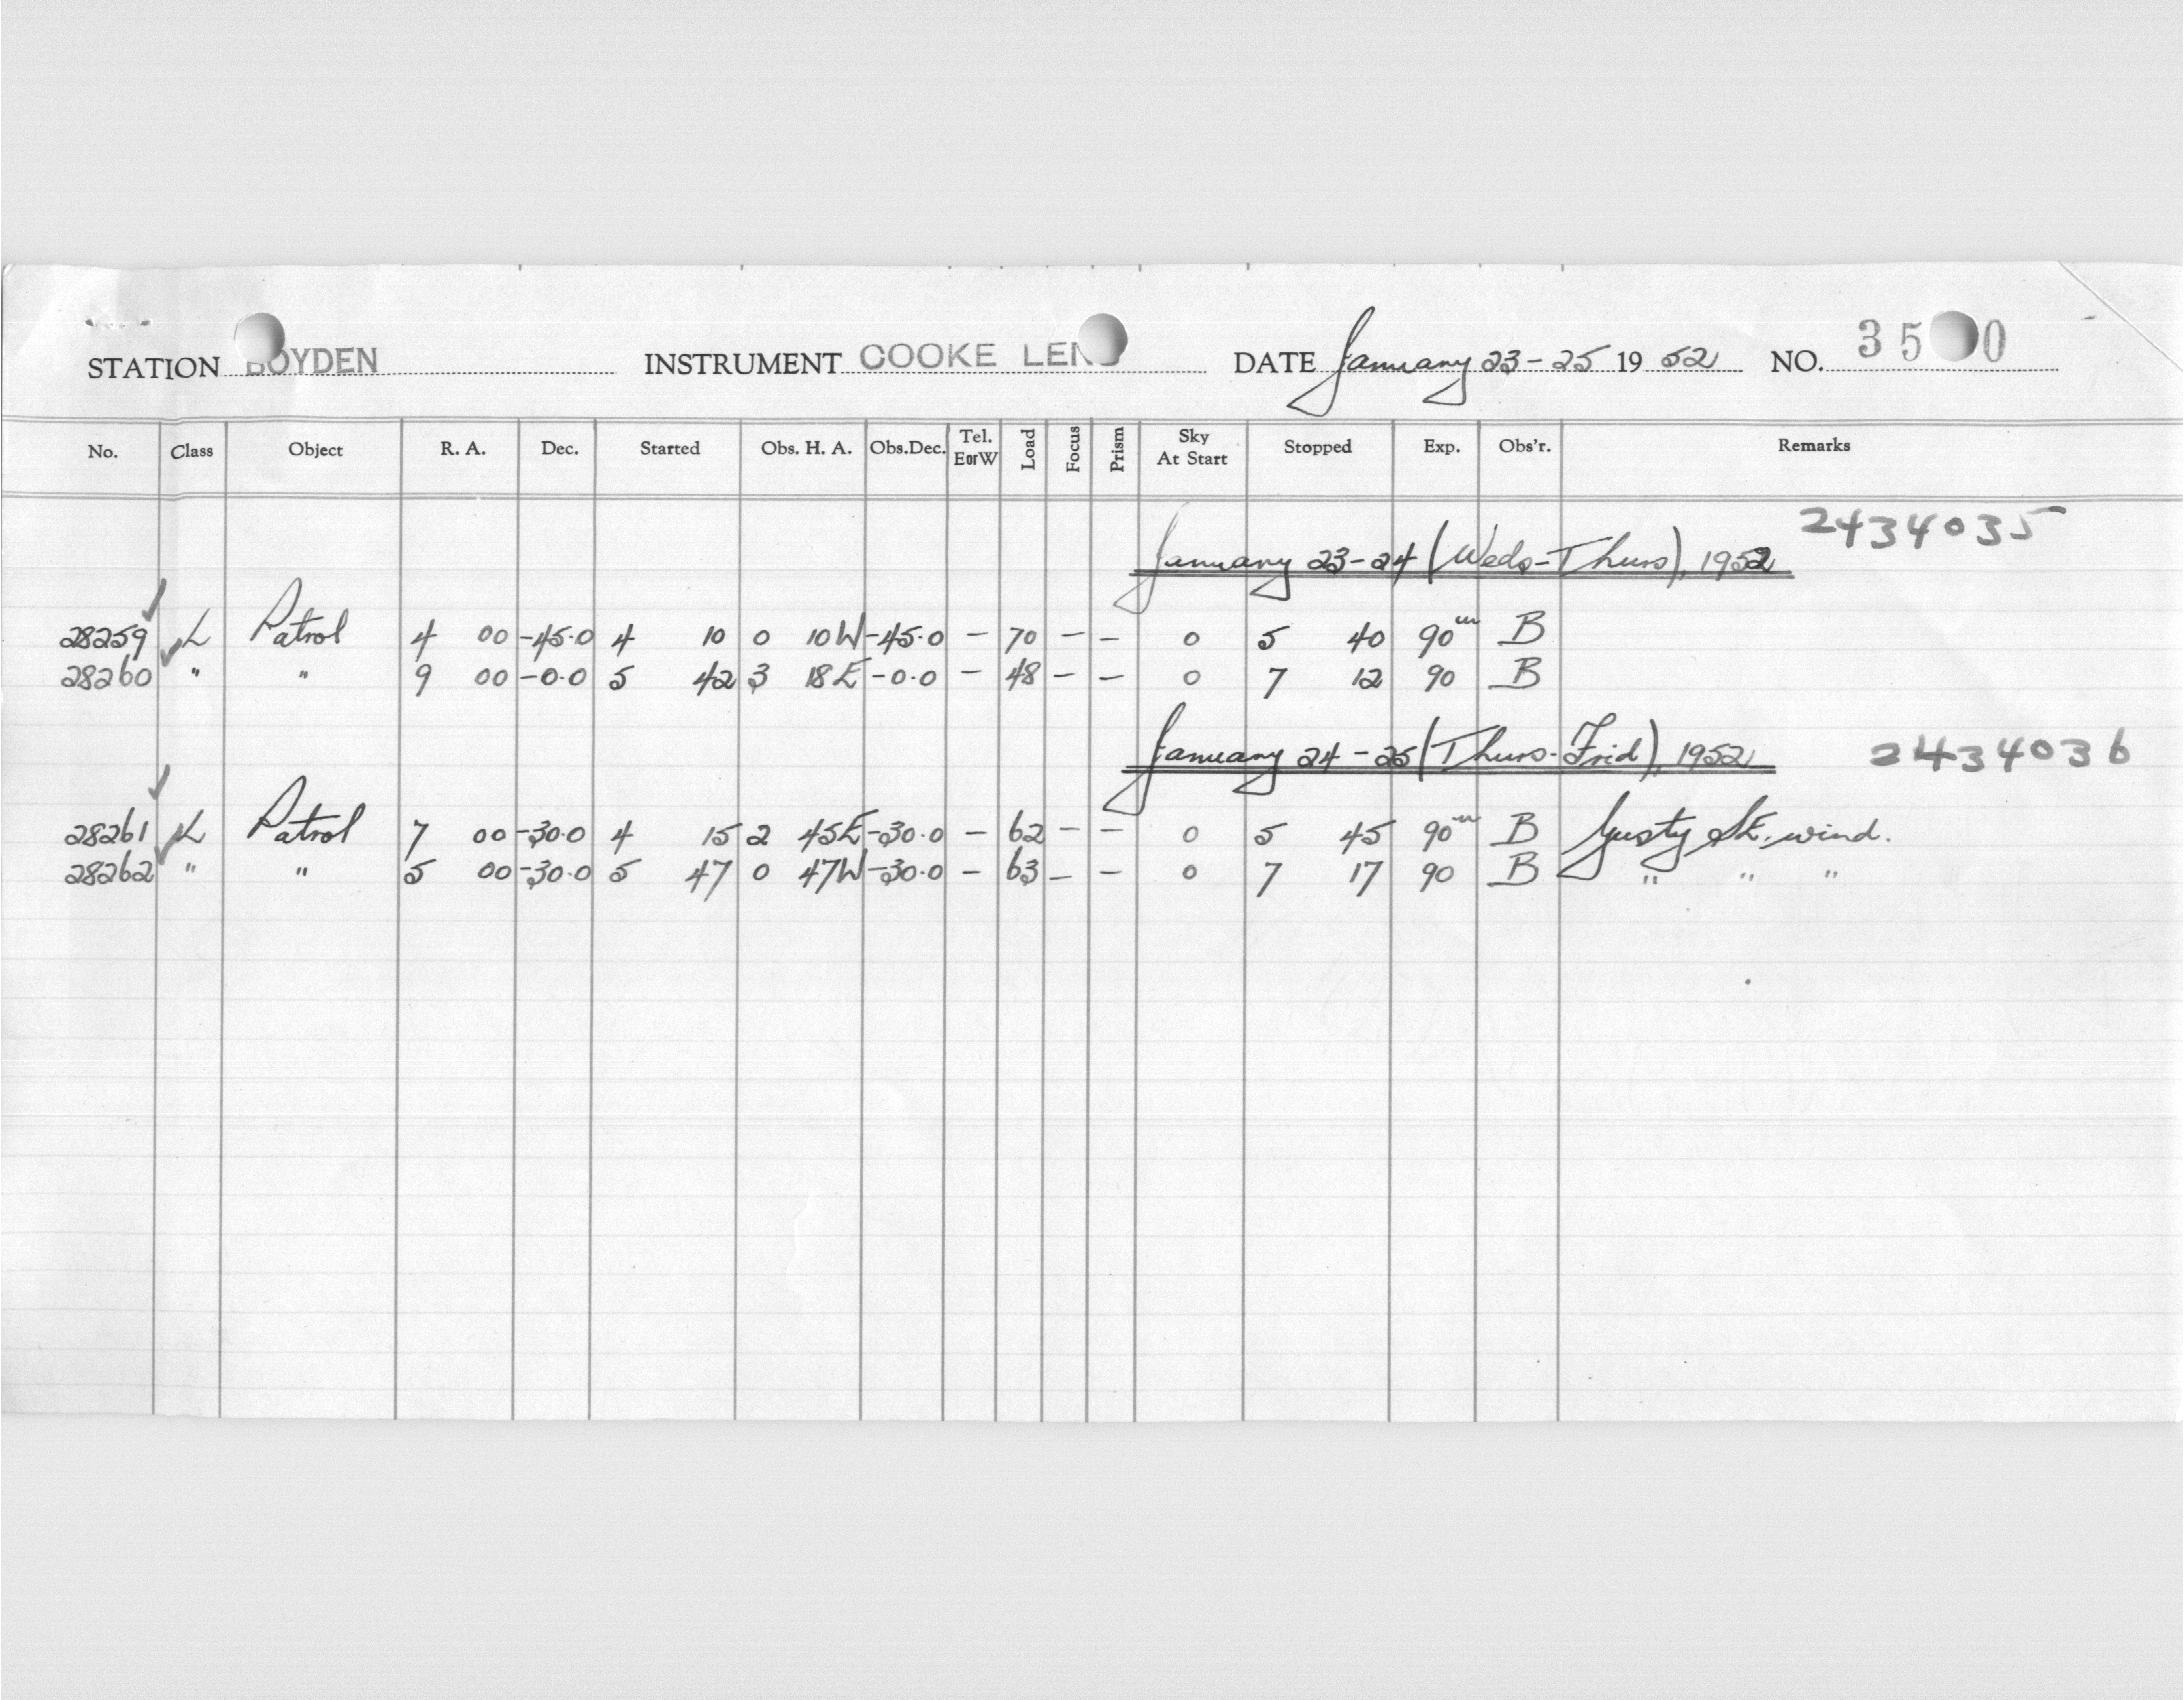 STATION BOYDEN INSTRUMENT COOKE LENS DATE January 23-25 19 52 NO. 35 0
No. Class Object R. A. Dec. Started Obs. H. A. Obs.Dec. Tel. EorW Load Focus Prism Sky At Start Stopped Exp. Obs'r. Remarks
January 23-24 (Weds-Thurs), 1952 2434035
28259 L Patrol 4 00 -45.0 4 10 0 10W -45.0 - 70 - - 0 5 40 90m B
28260 " " 9 00 -0.0 5 42 3 18E -0.0 - 48 - - 0 7 12 90 B
January 24-25 (Thurs-Frid), 1952 2434036
28261 L Patrol 7 00 -30.0 4 15 2 45E -30.0 - 62 - - 0 5 45 90m B Gusty SE. wind.
28262 " " 5 00 -30.0 5 47 0 47W -30.0 - 63 - - 0 7 17 90 B " " "